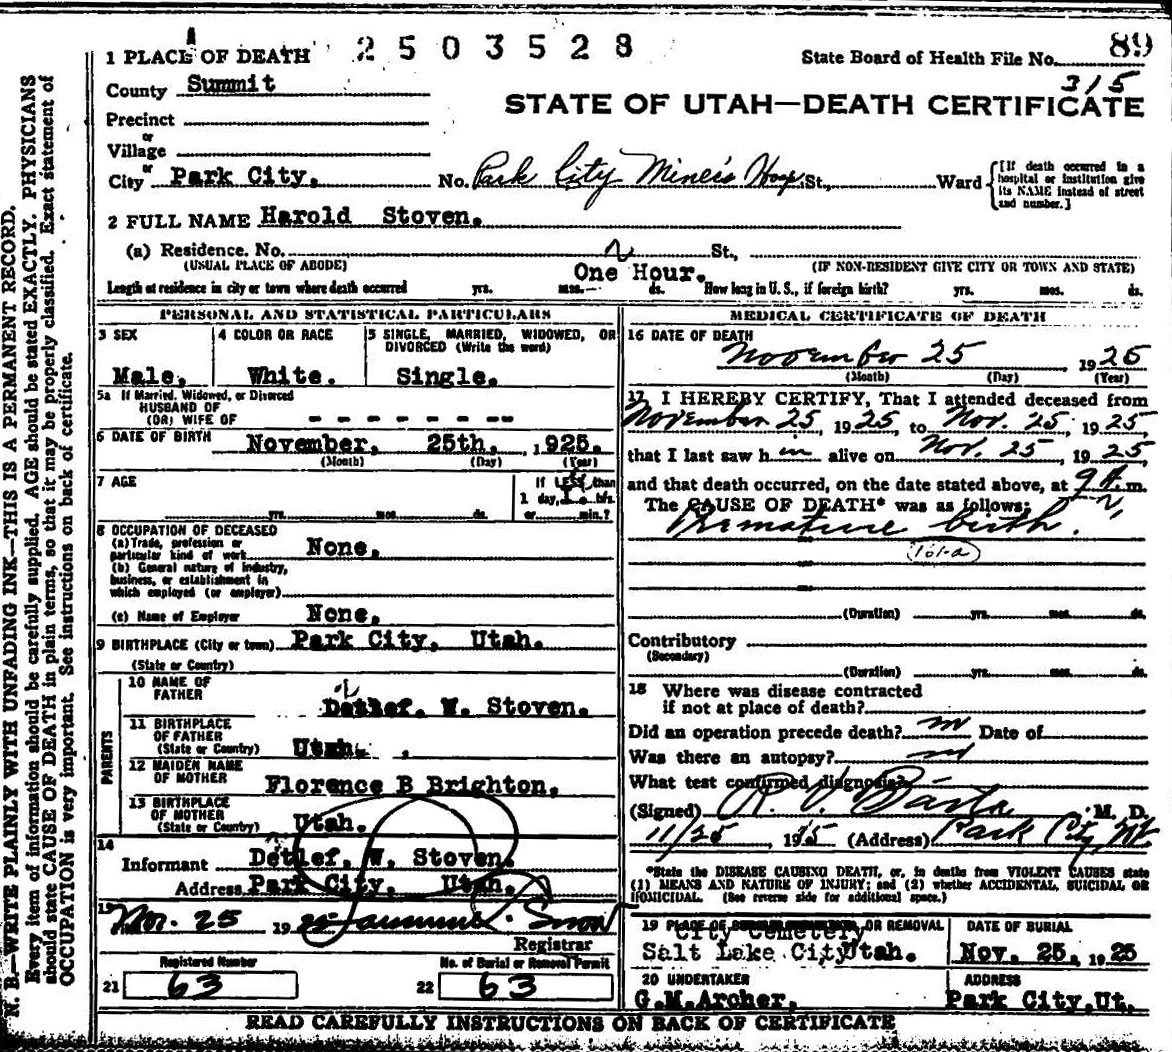 1 PLACE OF DEATH 2503528
State Board of Health File No. 89
315
County Summit
STATE OF UTAH—DEATH CERTIFICATE
Precinct
or
Village
or
City Park City. No. Park City Miner's Hosp St., Ward
[If death occurred in a hospital or institution give its NAME instead of street and number.]
2 FULL NAME Harold Stoven.
(a) Residence. No. St.,
(USUAL PLACE OF ABODE) (IF NON-RESIDENT GIVE CITY OR TOWN AND STATE)
One Hour.
Length of residence in city or town where death occurred yrs. mos. ds. How long in U. S., if foreign birth? yrs. mos. ds.
PERSONAL AND STATISTICAL PARTICULARS
3 SEX
Male.
4 COLOR OR RACE
White.
5 SINGLE, MARRIED, WIDOWED, OR DIVORCED (Write the word)
Single.
5a If Married, Widowed, or Divorced
HUSBAND OF
(OR) WIFE OF - - - - - - -
6 DATE OF BIRTH November, 25th, ,1925.
(Month) (Day) (Year)
7 AGE
yrs. mos. ds.
If LESS than
1 day, 1 hrs.
or min.?
8 OCCUPATION OF DECEASED
(a) Trade, profession or
particular kind of work None.
(b) General nature of industry,
business, or establishment in
which employed (or employer)
(c) Name of Employer None.
9 BIRTHPLACE (City or town) Park City, Utah.
(State or Country)
PARENTS
10 NAME OF
FATHER
Detlef. W. Stoven.
11 BIRTHPLACE
OF FATHER
(State or Country) Utah.
12 MAIDEN NAME
OF MOTHER Florence B Brighton.
13 BIRTHPLACE
OF MOTHER
(State or Country) Utah.
14
Informant Detlef. W. Stoven.
Address Park City, Utah.
15 Nov. 25 1925 Snow
Registrar
Registered Number
21 63
No. of Burial or Removal Permit
22 63
MEDICAL CERTIFICATE OF DEATH
16 DATE OF DEATH
November 25 1925
(Month) (Day) (Year)
17 I HEREBY CERTIFY, That I attended deceased from
November 25, 1925, to Nov. 25, 1925,
that I last saw him alive on Nov. 25, 1925,
and that death occurred, on the date stated above, at 9 A.m.
The CAUSE OF DEATH* was as follows:
Premature birth.
161-a
(Duration) yrs. mos. ds.
Contributory
(Secondary)
(Duration) yrs. mos. ds.
18 Where was disease contracted
if not at place of death?
Did an operation precede death? no Date of
Was there an autopsy? no
What test confirmed diagnosis?
(Signed) M. D.
11/25 1925 (Address) Park City, Ut.
*State the DISEASE CAUSING DEATH, or, in deaths from VIOLENT CAUSES state
(1) MEANS AND NATURE OF INJURY; and (2) whether ACCIDENTAL, SUICIDAL OR
HOMICIDAL. (See reverse side for additional space.)
19 PLACE OF BURIAL, CREMATION, OR REMOVAL
City Cemetery
Salt Lake City Utah.
DATE OF BURIAL
Nov. 25. 1925
20 UNDERTAKER
G.M.Archer.
ADDRESS
Park City,Ut.
READ CAREFULLY INSTRUCTIONS ON BACK OF CERTIFICATE
N. B.—WRITE PLAINLY WITH UNFADING INK—THIS IS A PERMANENT RECORD.
Every item of information should be carefully supplied. AGE should be stated EXACTLY. PHYSICIANS
should state CAUSE OF DEATH in plain terms, so that it may be properly classified. Exact statement of
OCCUPATION is very important. See instructions on back of certificate.